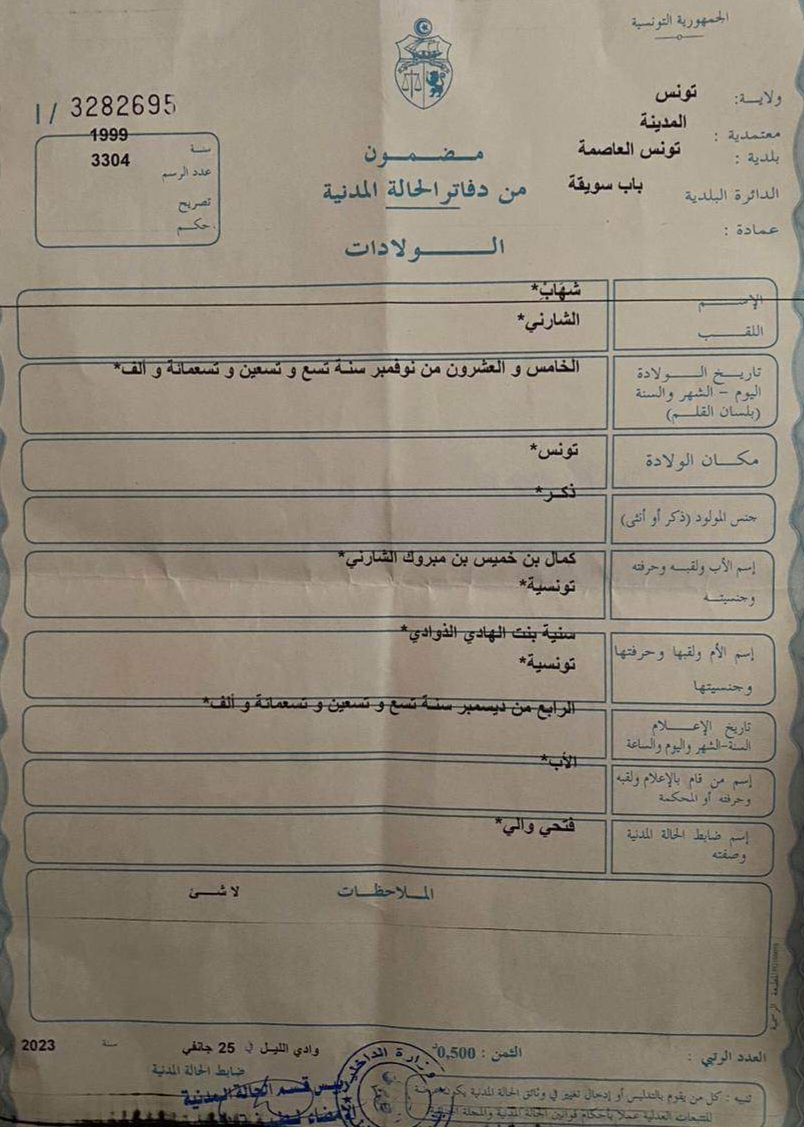 الجمهورية التونسية
ولايـــة: تونس
معتمدية : المدينة
بلدية : تونس العاصمة
الدائرة البلدية باب سويقة
عمادة :
I / 3282695
سنة 1999
عدد الرسم 3304
تصريح
حكم
مضمـــون
من دفاتر الحالة المدنية
الـــولادات
الإســـم شهَابْ*
اللقــب الشارني*
تاريــخ الـــولادة الخامس و العشرون من نوفمبر سنة تسع و تسعين و تسعمائة و ألف*
اليوم - الشهر والسنة
(بلسان القلــم)
مكــان الولادة تونس*
جنس المولود (ذكر أو أنثى) ذكر*
إسم الأب ولقبــه وحرفته كمال بن خميس بن مبروك الشارني*
وجنسيتــه تونسية*
إسم الأم ولقبها وحرفتها سنية بنت الهادي الذوادي*
وجنسيتها تونسية*
تاريخ الإعــــلام الرابع من ديسمبر سنة تسع و تسعين و تسعمائة و ألف*
السنة-الشهر واليوم والساعة
إسم من قام بالإعلام ولقبه الأب*
وحرفته أو المحكمة
إسم ضابط الحالة المدنية فتحي والي*
وصفته
المـلاحظــات
لا شــئ
العدد الرتبي :
الثمن : 0,500د
وادي الليل في 25 جانفي سنة 2023
ضابط الحالة المدنية
رئيس قسم الحالة المدنية
وزارة الداخلية
تنبيه : كل من يقوم بالتدليس أو إدخال تغيير في وثائق الحالة المدنية يكون
للتتبعات العدلية عملا بأحكام قوانين الحالة المدنية والمجلة